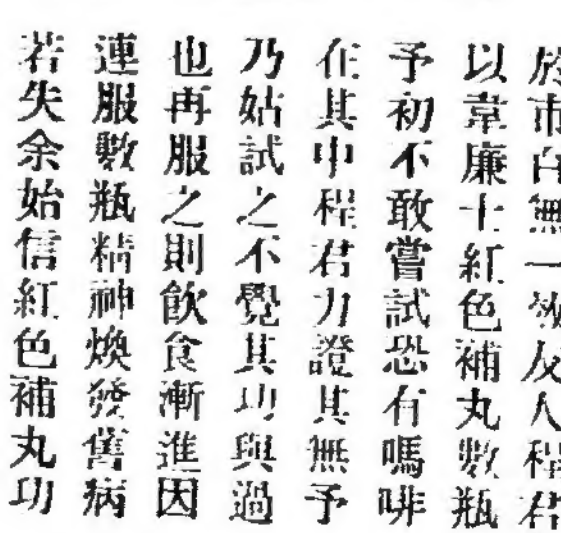 於市白無一效友人程君
以韋廉士紅色補丸數瓶
予初不敢嘗試恐有嗎啡
在其中程君力證其無予
乃姑試之不覺其功與過
也再服之則飲食漸進因
連服數瓶精神煥發舊病
若失余始信紅色補丸功